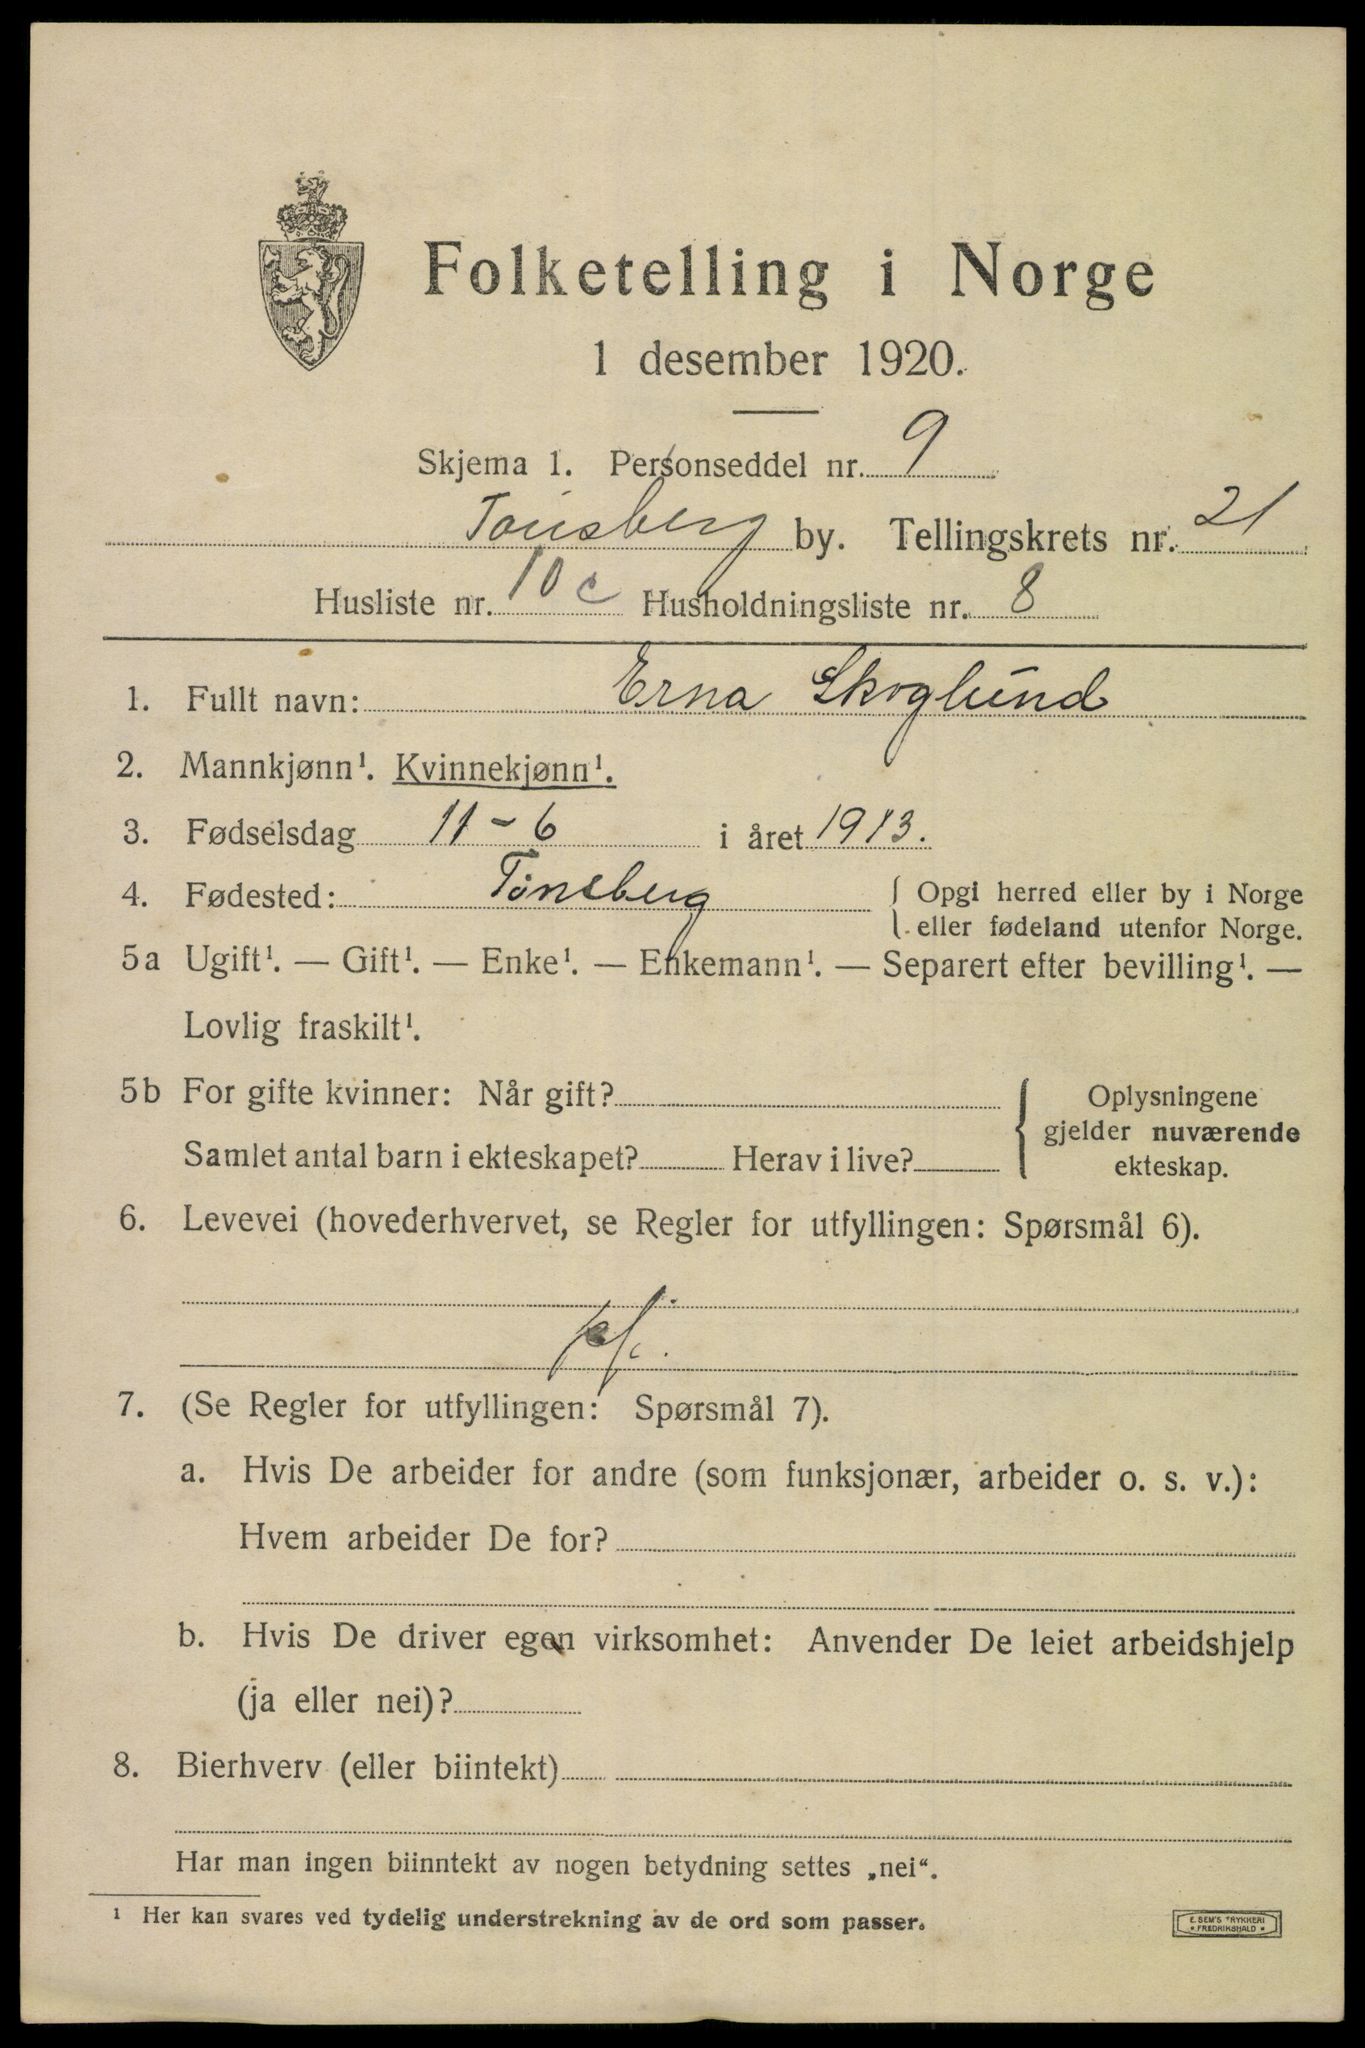 Folketelling i Norge
1 desember 1920.
Skjema 1. Personseddel nr. 9
Tønsberg by. Tellingskrets nr. 21
Husliste nr. 10 c Husholdningsliste nr. 8
1. Fullt navn: Erna Skoglund
2. Mannkjønn¹. Kvinnekjønn¹.
3. Fødselsdag 11-6 i året 1913.
4. Fødested: Tønsberg { Opgi herred eller by i Norge
eller fødeland utenfor Norge.
5a Ugift¹. — Gift¹. — Enke¹. — Enkemann¹. — Separert efter bevilling¹. —
Lovlig fraskilt¹.
5b For gifte kvinner: Når gift? { Oplysningene
gjelder nuværende
Samlet antal barn i ekteskapet? Herav i live?
ekteskap.
6. Levevei (hovederhvervet, se Regler for utfyllingen: Spørsmål 6).
7. (Se Regler for utfyllingen: Spørsmål 7).
a. Hvis De arbeider for andre (som funksjonær, arbeider o. s. v.):
Hvem arbeider De for?
b. Hvis De driver egen virksomhet: Anvender De leiet arbeidshjelp
(ja eller nei)?
8. Bierhverv (eller biintekt)
Har man ingen biinntekt av nogen betydning settes „nei“.
¹ Her kan svares ved tydelig understrekning av de ord som passer.
E. SEM'S TRYKKERI
* FREDRIKSHALD *